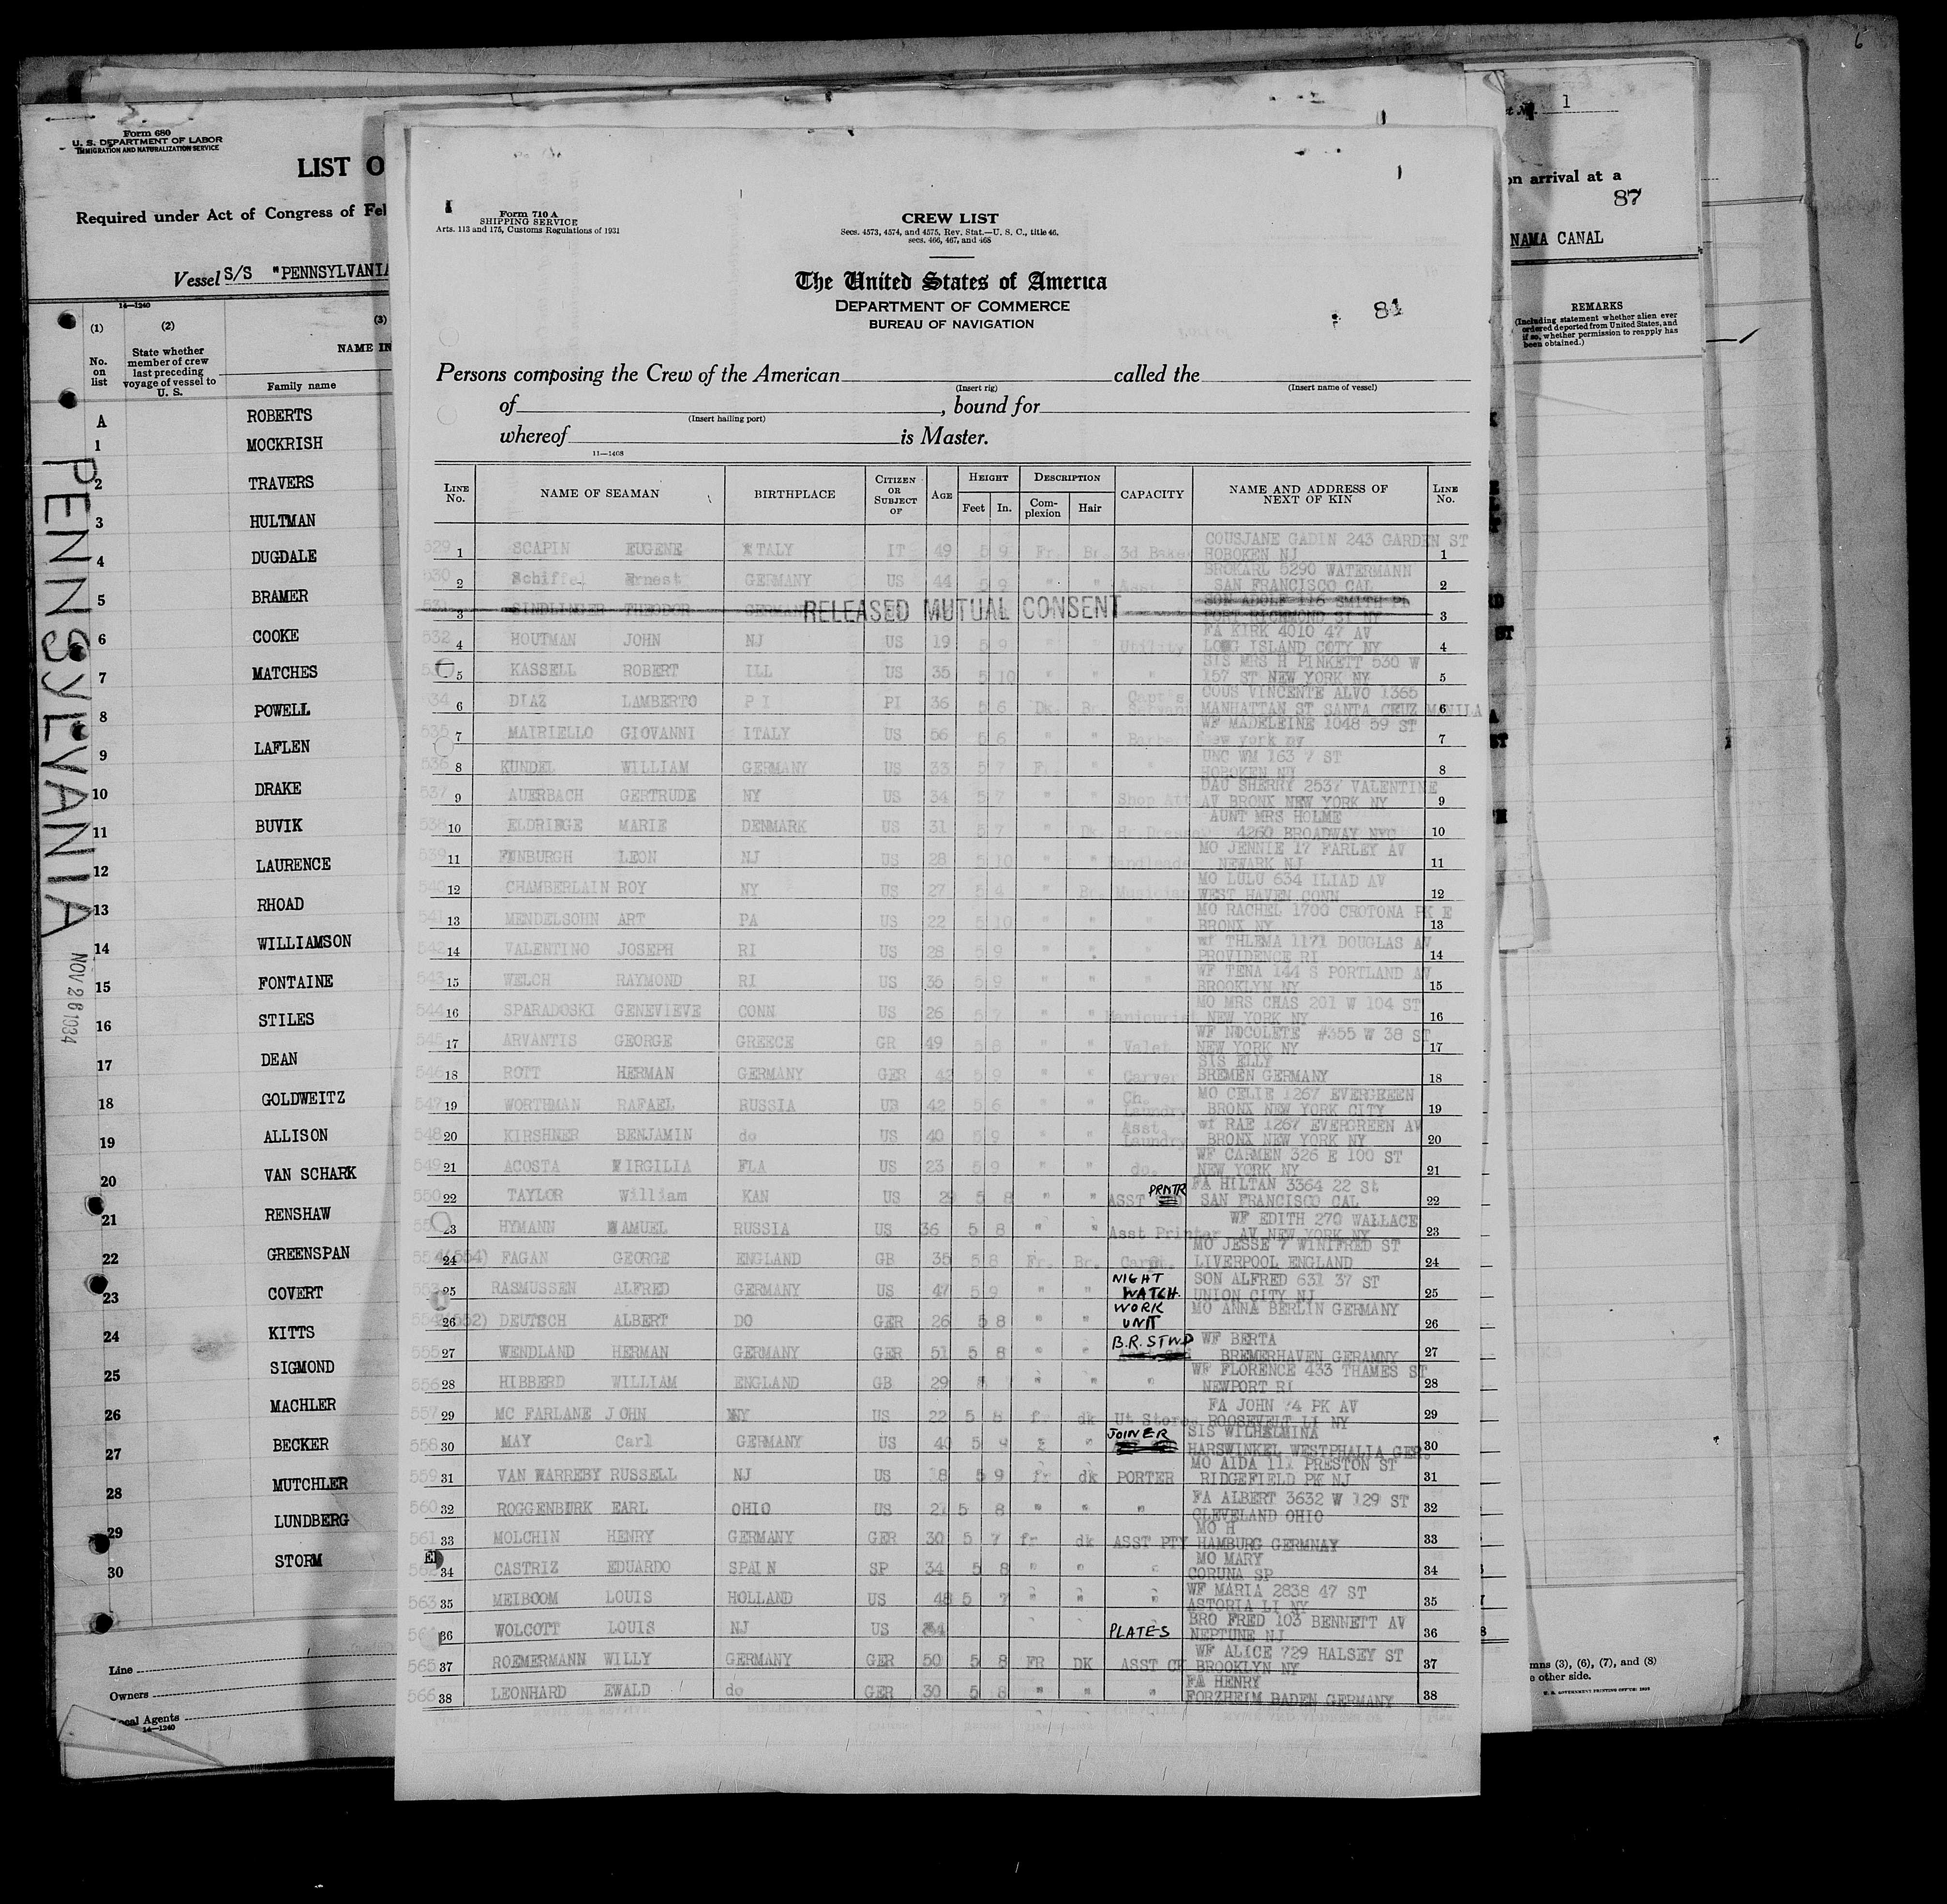 6
Form 680
U. S. DEPARTMENT OF LABOR
IMMIGRATION AND NATURALIZATION SERVICE
LIST O
Required under Act of Congress of Fe
Vessel S/S "PENNSYLVANIA
14—1240
(1) (2) (3)
No. on list
State whether member of crew last preceding voyage of vessel to U. S.
NAME IN
Family name
A ROBERTS
1 MOCKRISH
2 TRAVERS
3 HULTMAN
4 DUGDALE
5 BRAMER
6 COOKE
7 MATCHES
8 POWELL
9 LAFLEN
10 DRAKE
11 BUVIK
12 LAURENCE
13 RHOAD
14 WILLIAMSON
15 FONTAINE
16 STILES
17 DEAN
18 GOLDWEITZ
19 ALLISON
20 VAN SCHARK
21 RENSHAW
22 GREENSPAN
23 COVERT
24 KITTS
25 SIGMOND
26 MACHLER
27 BECKER
28 MUTCHLER
29 LUNDBERG
30 STORM
Line
Owners
cal Agents
14—1240
PENNSYLVANIA
NOV 26 1934
Form 710 A
SHIPPING SERVICE
Arts. 113 and 175, Customs Regulations of 1931
CREW LIST
Secs. 4573, 4574, and 4575, Rev. Stat.—U. S. C., title 46,
secs. 466, 467, and 468
The United States of America
DEPARTMENT OF COMMERCE
BUREAU OF NAVIGATION
84
Persons composing the Crew of the American called the
(Insert rig) (Insert name of vessel)
of , bound for
(Insert hailing port)
whereof is Master.
11—1408
LINE No. NAME OF SEAMAN BIRTHPLACE CITIZEN OR SUBJECT OF AGE HEIGHT DESCRIPTION CAPACITY NAME AND ADDRESS OF NEXT OF KIN LINE No.
Feet In. Complexion Hair
529 1 SCAPIN EUGENE ITALY IT 49 5 9 Fr. Br. 3d Baker COUSJANE GADIN 243 GARDEN ST HOBOKEN NJ 1
530 2 Schiffel Ernest GERMANY US 44 5 9 " " Asst BROKARL 5290 WATERMANN SAN FRANCISCO CAL 2
531 3 SINDLINGER THEODOR GERMAN RELEASED MUTUAL CONSENT SON ADOLF 116 SMITH PL PORT RICHMOND SI NY 3
532 4 HOUTMAN JOHN NJ US 19 5 9 " " Utility FA KIRK 4010 47 AV LONG ISLAND COTY NY 4
5 KASSELL ROBERT ILL US 35 5 10 " " " SIS MRS H PINKETT 530 W 157 ST NEW YORK NY 5
534 6 DIAZ LAMBERTO P I PI 36 5 6 Dk. Br. Capt's Servant COUS VINCENTE ALVO 1365 MANHATTAN ST SANTA CRUZ MANILA 6
535 7 MAIRIELLO GIOVANNI ITALY US 56 5 6 " " Barber WF MADELEINE 1048 59 ST New york ny 7
536 8 KUNDEL WILLIAM GERMANY US 33 5 7 F. " " UNC WM 163 7 ST HOBOKEN NY 8
537 9 AUERBACH GERTRUDE NY US 34 5 7 " " Shop Att DAU SHERRY 2537 VALENTINE AV BRONX NEW YORK NY 9
538 10 ELDRIEGE MARIE DENMARK US 31 5 7 " Dk. Hr Dresser AUNT MRS HOLME 4260 BROADWAY NYC 10
539 11 FINBURGH LEON NJ US 28 5 10 " " Bandleader MO JENNIE 17 FARLEY AV NEWARK NJ 11
540 12 CHAMBERLAIN ROY NY US 27 5 4 " Br. Musician MO LULU 634 ILIAD AV WEST HAVEN CONN 12
541 13 MENDELSOHN ART PA US 22 5 10 " " " MO RACHEL 1700 CROTONA PK E BRONX NY 13
542 14 VALENTINO JOSEPH RI US 28 5 9 " " " wf THLEMA 1171 DOUGLAS AV PROVIDENCE RI 14
543 15 WELCH RAYMOND RI US 35 5 9 " " " WF TENA 144 S PORTLAND AV BROOKLYN NY 15
544 16 SPARADOSKI GENEVIEVE CONN US 26 5 7 " " Manicurist MO MRS CHAS 201 W 104 ST NEW YORK NY 16
545 17 ARVANTIS GEORGE GREECE GR 49 5 8 " " Valet WF NOCOLETE #355 W 38 ST NEW YORK NY 17
546 18 ROTT HERMAN GERMANY GER 42 5 9 " " Carver SIS ELLY BREMEN GERMANY 18
547 19 WORTHMAN RAFAEL RUSSIA US 42 5 6 " " Ch. Laundry MO CELIE 1267 EVERGREEN BRONX NEW YORK CITY 19
548 20 KIRSHNER BENJAMIN do US 40 5 9 " " Asst. Laundry wf RAE 1267 EVERGREEN AV BRONX NEW YORK NY 20
549 21 ACOSTA VIRGILIA FLA US 23 5 9 " " do. WF CARMEN 326 E 100 ST NEW YORK NY 21
550 22 TAYLOR William KAN US 29 5 8 " " ASST PRNTR FA HILTAN 3364 22 St SAN FRANCISCO CAL 22
23 HYMANN SAMUEL RUSSIA US 36 5 8 " " Asst Printer WF EDITH 270 WALLACE AV NEW YORK NY 23
24 (554) FAGAN GEORGE ENGLAND GB 35 5 8 Fr. Br. Carpt. MO JESSE 7 WINIFRED ST LIVERPOOL ENGLAND 24
553 25 RASMUSSEN ALFRED GERMANY US 47 5 9 " " NIGHT WATCH. SON ALFRED 631 37 ST UNION CITY NJ 25
26 (552) DEUTSCH ALBERT DO GER 26 5 8 " " WORK UNIT MO ANNA BERLIN GERMANY 26
555 27 WENDLAND HERMAN GERMANY GER 51 5 8 " " B.R. STWD WF BERTA BREMERHAVEN GERAMNY 27
556 28 HIBBERD WILLIAM ENGLAND GB 29 5 " " " WF FLORENCE 433 THAMES ST NEWPORT RI 28
557 29 MC FARLANE JOHN NY US 22 5 8 fr dk Ut Stores FA JOHN 74 PK AV ROOSEVELT LI NY 29
558 30 MAY Carl GERMANY US 40 5 9 " " JOINER SIS WILHELMINA HARSWINKEL WESTPHALIA GER. 30
559 31 VAN WARREBY RUSSELL NJ US 18 5 9 fr dk PORTER MO AIDA 111 PRESTON ST RIDGEFIELD PK NJ 31
560 32 ROGGENBURK EARL OHIO US 21 5 8 " " " FA ALBERT 3632 W 129 ST CLEVELAND OHIO 32
561 33 MOLCHIN HENRY GERMANY GER 30 5 7 fr dk ASST PTY MO H HAMBURG GERMNAY 33
562 34 CASTRIZ EDUARDO SPAIN SP 34 5 8 " " " MO MARY CORUNA SP 34
563 35 MEIBOOM LOUIS HOLLAND US 48 5 7 " " " WF MARIA 2838 47 ST ASTORIA LI NY 35
36 WOLCOTT LOUIS NJ US 34 PLATES BRO FRED 103 BENNETT AV NEPTUNE NJ 36
565 37 ROEMERMANN WILLY GERMANY GER 50 5 8 FR DK ASST CK WF ALICE 729 HALSEY ST BROOKLYN NY 37
566 38 LEONHARD EWALD do GER 30 5 8 " " " FA HENRY FORZHEIM BADEN GERMANY 38
t No. 1
on arrival at a
87
NAMA CANAL
REMARKS
(Including statement whether alien ever ordered deported from United States, and if so, whether permission to reapply has been obtained.)
mns (3), (6), (7), and (8)
e other side.
U. S. GOVERNMENT PRINTING OFFICE